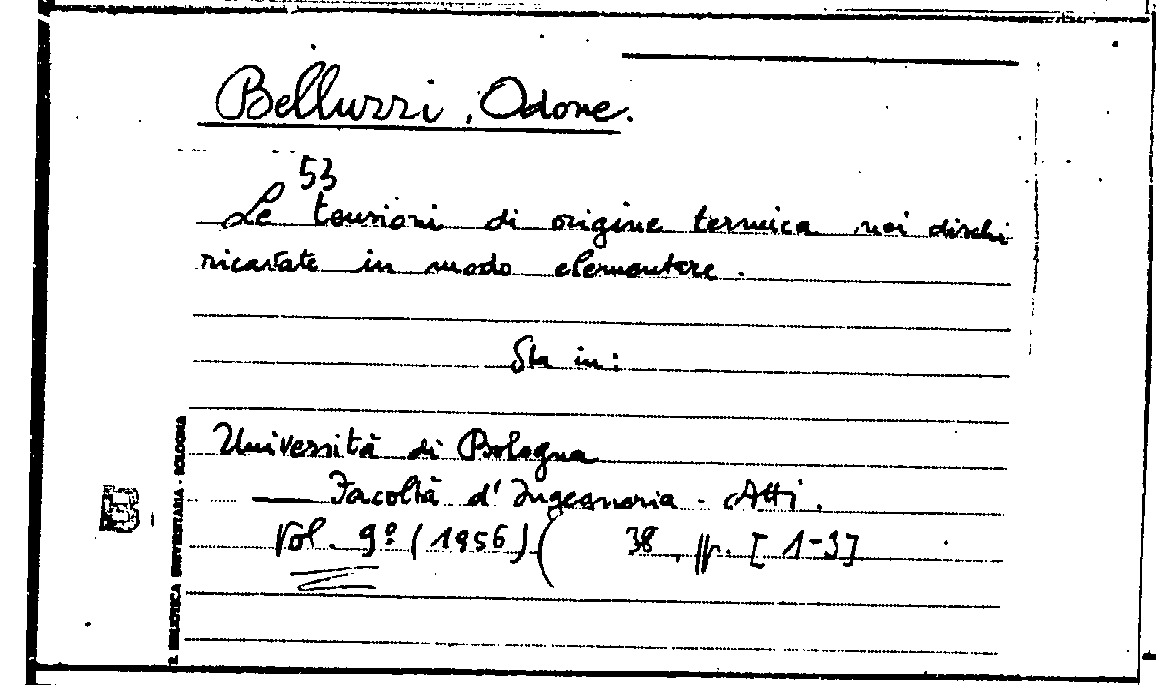 Belluzzi, Odone.
53
Le tensioni di origine termica nei dischi
ricavate in modo elementare.
Sta in:
Università di Bologna
— Facoltà d'Ingegneria - Atti.
Vol. 9º (1956) ( 38, pp. [1-3]
B
R. BIBLIOTECA UNIVERSITARIA - BOLOGNA